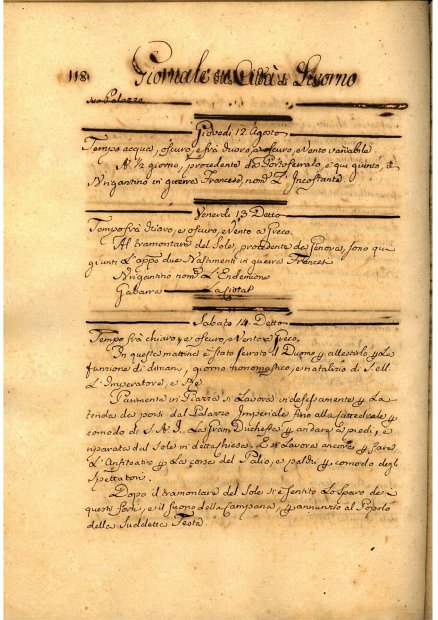 118. Giornale della Città di Livorno
suo Palazzo
Giovedi 12 Agosto
Tempo acqua, oscuro e frà chiaro, e oscuro, e vento variabile
A ½ giorno, procedente da Portoferraio, è qui giunto, il
Brigantino in guerra Francese, nomº L'Incostante.
Venerdi 13 Detto
Tempo frà chiaro, e oscuro, e Vento a Greco.
Al tramontare del Sole, procedente da Genova, sono qui
giunti L'appº due Bastimenti in guerra Francesi
Brigantino nomº L'Endemione
Gabarra La
Sabato 14 Detto
Tempo frà chiaro, e oscuro, e Vento a Greco.
In questa mattina è stato serrato il Duomo p allestirlo, p La
funzione di dimani, giorno honomastico, e natalizio di S. ell
L'Imperatore, e Rè
Parimente in Piazza si Lavora indefessamente p La
tenda da porsi dal Palazzo Imperiale fino alla Cattedrale p
comodo di S. A. I. La Gran Duchessa p andare a piedi, e
riparata dal Sole in detta chiesa. E si Lavora ancora p fare
L'Anfiteatro p La corsa del Palio, e palchi p comodo degli
Spettatori.
Dopo il tramontare del Sole si è sentito Lo Sparo de
questi forti, e il suono della Campana, p annunzio al Popolo
della Suddetta Festa